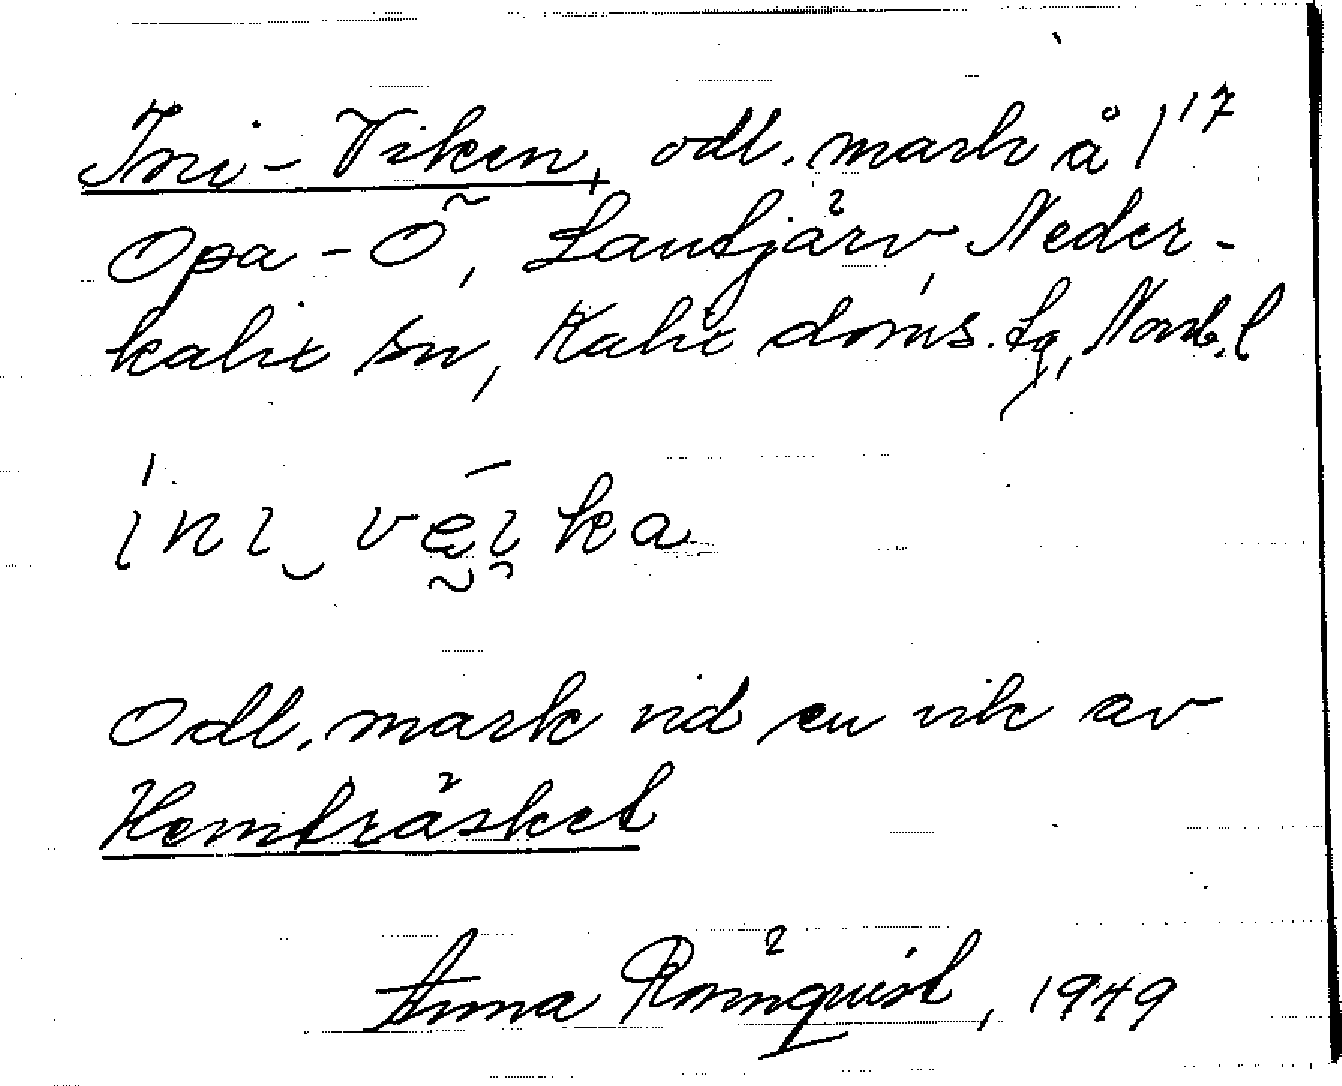 Ini-Viken, odl. mark å 1¹⁷
Opa-Ö, Lantjärv, Neder-
kalix sn, Kalix doms. lg, Norrb. l
ini vẹ̄i ka
Odl. mark vid en vik av
Hemträsket
Anna Rönnquist, 1949